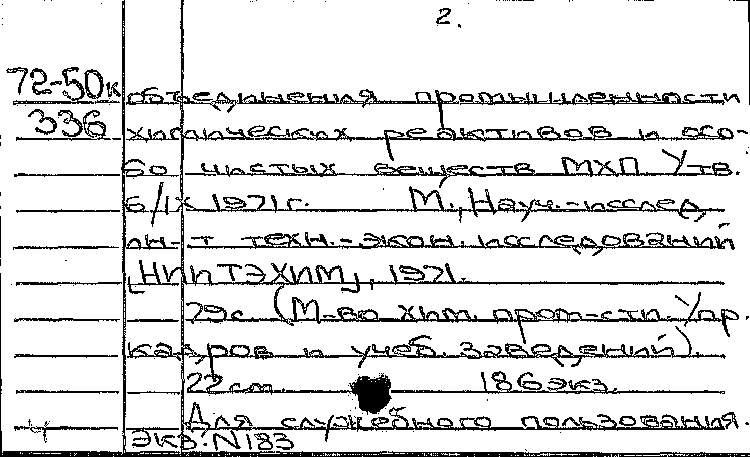 2.
72-50к объединения промышленности
336 химических реактивов и осо-
бо чистых веществ МХП. Утв.
6/IX 1971 г. М., Науч.-исслед.
ин-т техн.-экон. исследований
[НИИТЭХИМ], 1971.
29 с. (М-во хим. пром-сти. Упр.
кадров и учеб. заведений).
22 см. 186 экз.
Для служебного пользования.
4 Экз. N183